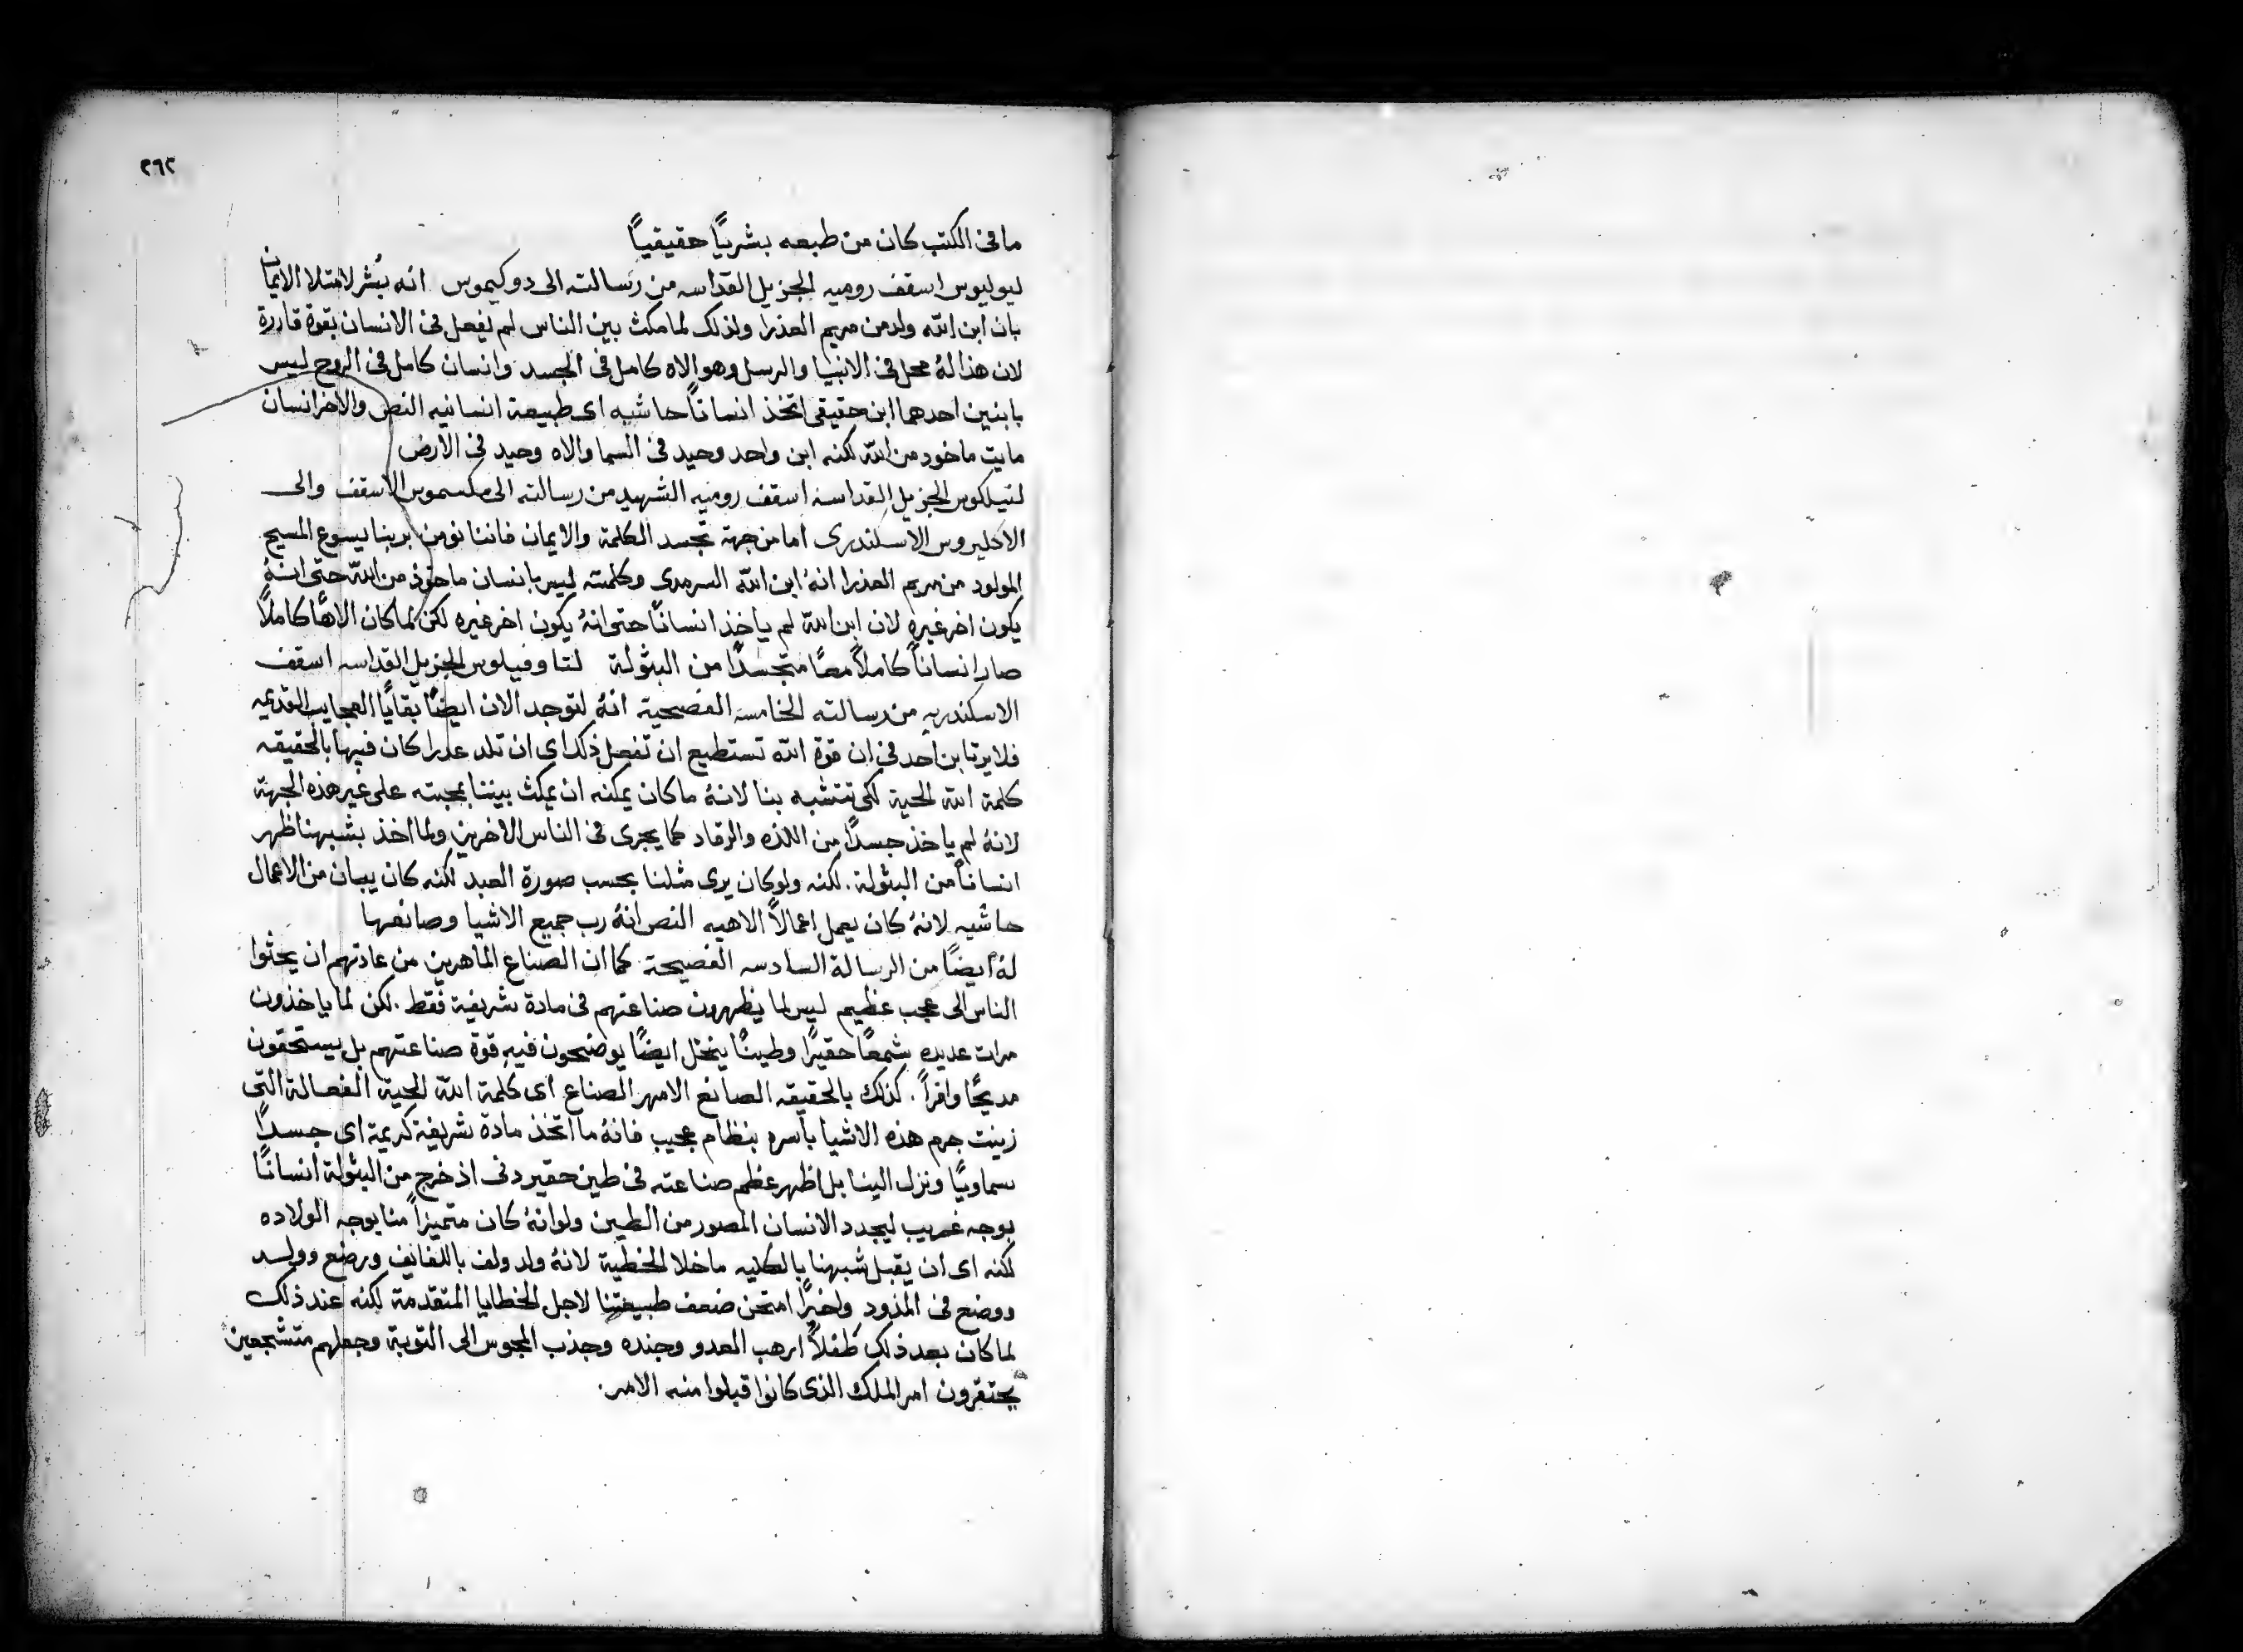 ٢٦٢
ما فى الكتب كان من طبعه بشريًا حقيقيًا
ليوليوس اسقف روميه الجزيل القداسه من رسالته الى دوكيموس انه بُشر لامتلا الايمان
بان ابن الله ولد من مريم العذرا ولذلك لما مكث بين الناس لم يفعل فى الانسان بقوة قادرة
لان هذا لهُ محل فى الانبيا والرسل وهو الاه كامل فى الجسد وانسان كامل فى الروح ليس
بابنين احدهما ابن حقيقى اتخذ انسانًا حاشيه اى طبيعة انسانيه النص والاخر انسان
مايت ماخود من الله لكنه ابن واحد وحيد فى السما والاه وحيد فى الارض
لفيلكوس الجزيل القداسه اسقف روميه الشهيد من رسالته الى مكسموس الاسقف والى
الاكليروس الاسكندرى اما من جهة تجسد الكلمة والايمان فاننا نومن بربنا يسوع المسيح
المولود من مريم العذرا انهُ ابن الله السرمدى وكلمته ليس بانسان ماخوذ من الله حتى انهُ
يكون اخر غيره لان ابن الله لم ياخذ انسانًا حتى انهُ يكون اخر غيره لكن لما كان الاهًا كاملًا
صار انسانًا كاملًا معًا متجسدًا من البثولة لتاوفيلوس الجزيل القداسه اسقف
الاسكندريه من رسالته الخامسه الفصحية انهُ لتوجد الان ايضًا بقايًا العجايب القديمه
فلا يرتابن احد فى ان قوة الله تستطيع ان تفعل ذلك اى ان تلد عدرا كان فيها بالحقيقه
كلمة الله الحية لكى تتشبه بنا لانهُ ما كان يمكنه ان يمكث بيننا بمحبته على غير هذه الجهة
لانهُ لم ياخذ جسدًا من اللذه والرقاد كما يجرى فى الناس الاخرين ولما اخذ بشبهنا ظهر
انسانًا من البثولة . لكنه ولو كان يرى مثلنا بحسب صورة العبد لكنه كان يبان من الاعمال
حاشيه لانهُ كان يعمل اعمالًا الاهيه النص انهُ رب جميع الاشيا وصانعها
لهُ ايضًا من الرسالة السادسه الفصيحة كما ان الصناع الماهرين من عادتهم ان يحثوا
الناس الى عجب عظيم ليس لما يظهرون صناعتهم فى مادة شريفة فقط . لكن لما ياخذون
مرات عديده شمعًا حقيرًا وطينًا ينحل ايضًا يوضحون فيهِ قوة صناعتهم بل يستحقون
مديحًا وافرًا . كذلك بالحقيقه الصانع الامهر الصناع اى كلمة الله الحية الفعالة التى
زينت جرم هذه الاشيا باسره بنظام عجيب فانهُ ما اتخذ مادة شريفة كريمة اى جسدًا
سماويًا ونزل الينا بل اظهر عظم صناعته فى طين حقير دنى اذ خرج من البثولة انسانًا
بوجه غريب ليجدد الانسان المصور من الطين ولو انهُ كان متميزًا منا بوجه الولاده
لكنه اى ان يقبل شبهنا بالكليه ما خلا الخطية لانهُ ولد ولف باللفايف ورضع وولد
ووضع فى المذود واخيرًا امتحن ضعف طبيعتنا لاجل الخطايا المتقدمة لكنه عند ذلك
لما كان بعد ذلك طفلًا ارهب العدو وجنده وجذب المجوس الى التوبة وجعلهم متشجعين
يحتقرون امر الملك الذى كانوا قبلوا منه الامر .